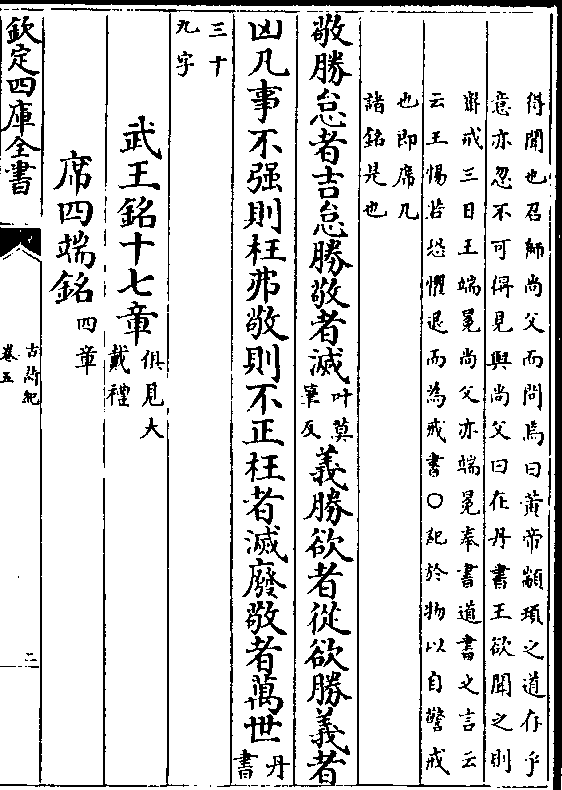 得聞也召師尚父而問焉曰黃帝顓頊之道存乎
意亦忽不可得見與尚父曰在丹書王欲聞之則
齋戒三日王端冕尚父亦端冕奉書道書之言云
云王惕若恐懼退而為戒書○記於物以自警戒
也即席几
諸銘是也
敬勝怠者吉怠勝敬者滅叶莫
筆反
義勝欲者從欲勝義者
凶凡事不强則枉弗敬則不正枉者滅廢敬者萬世丹
書
三十
九字
武王銘十七章俱見大
戴禮
席四端銘四章
欽定四庫全書
古詩紀
卷五
二